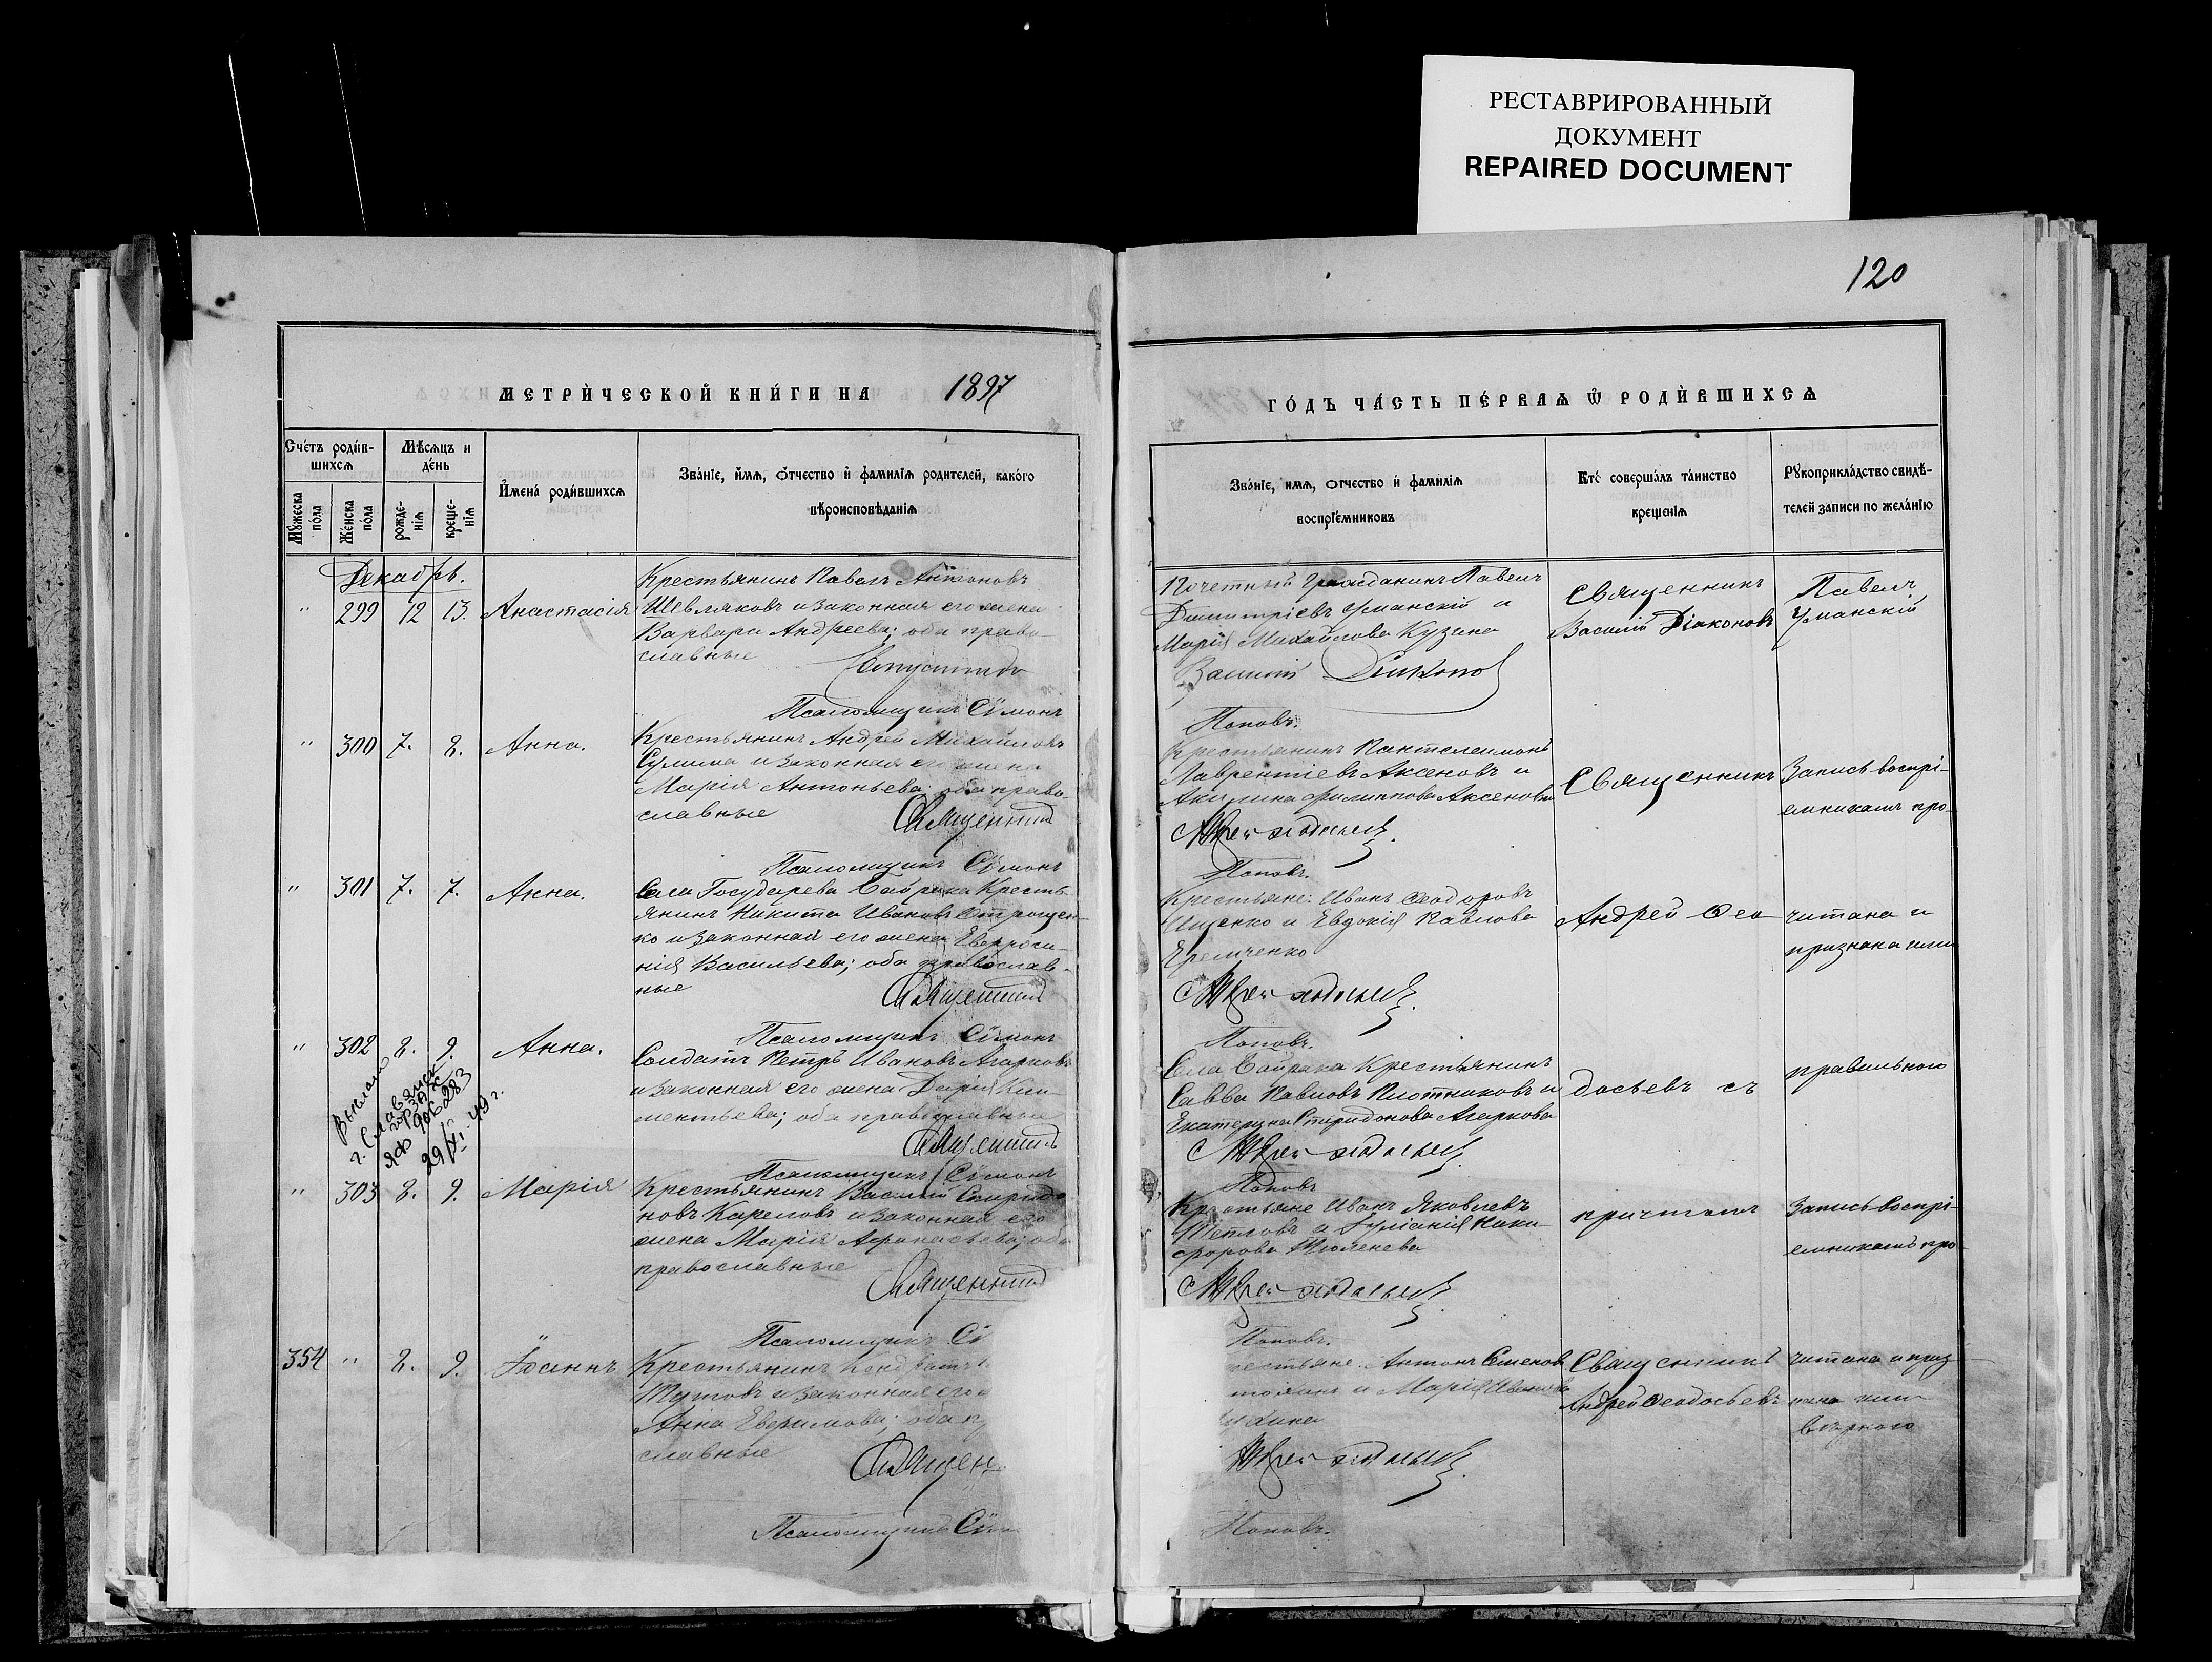 РЕСТАВРИРОВАННЫЙ
ДОКУМЕНТ
REPAIRED DOCUMENT
120
МЕТРИ́ЧЕСКОЙ КНИ́ГИ НА 1897
ГО́ДЪ ЧА́СТЬ ПЕ́РВАѦ Ѿ РОДИ́ВШИХСѦ
Сче́тъ роди́в-
шихсѧ
Мѣ́сѧцъ и
де́нь
Мꙋ́жеска
по́ла
Же́нска
по́ла
рожде́-
нїѧ
креще́-
нїѧ
И҆мена̀ роди́вшихсѧ
Зва́нїе, и҆́мѧ, ѻ҆́тчество и҆ фами́лїѧ роди́телей, како́го
вѣроисповѣ́данїѧ
Зва́нїе, и҆́мѧ, ѻ҆́тчество и҆ фами́лїѧ
воспрїе́мниковъ
Кто̀ соверша́лъ та́инство
креще́нїѧ
Рꙋкоприкла́дство свидѣ́-
телей записи по жела́нїю
Декабрь.
" 299 12 13. Анастасія
Крестьянинъ Павелъ Антоновъ
Шевляковъ и законная его жена
Варвара Андреева; оба право-
славные
Псаломщикъ Сѵмонъ
Почетный Гражданинъ Павелъ
Димитріевъ Уманскій и
Марія Михайлова Кузина
Василій Діаконов
Поповъ.
Священникъ
Василій Діаконовъ
Павелъ
Уманскій
" 300 7. 8. Анна.
Крестьянинъ Андрей Михайловъ
Сулима и законная его жена
Марія Антоньева; оба право-
славные
Священникъ
Псаломщикъ Сѵмонъ
Крестьянинъ Пантелеимонъ
Лаврентіевъ Аксеновъ и
Акилина Филиппова Аксенова
Андрей Ѳеодосьевъ.
Поповъ.
Священникъ
Запись воспрі-
емникамъ про-
" 301 7. 7. Анна.
Села Государева Байрака Кресть-
янинъ Никита Ивановъ Отрощен-
ко и законная его жена Евфроси-
нія Васильева; оба православ-
ные
Священникъ
Псаломщикъ Сѵмонъ
Крестьяне: Иванъ Ѳеодоровъ
Ищенко и Евдокія Павлова
Еремченко
Андрей Ѳеодосьевъ.
Поповъ.
Андрей Ѳео-
читана и
признана ими
" 302 8. 9. Анна.
Солдатъ Петръ Ивановъ Агарковъ
и законная его жена Дарія Кли-
ментьева; оба православные
Священникъ
Псаломщикъ Сѵмонъ
Села Байрака Крестьянинъ
Савва Павловъ Плотниковъ и
Екатерина Спиридонова Агаркова
Андрей Ѳеодосьевъ.
Поповъ
досьевъ съ
правильного
г. Славянск
29/XI-49 г.
" 303 8. 9. Марія
Крестьянинъ Василій Спиридо-
новъ Карповъ и законная его
жена Марія Аѳанасьева; оба
православные
Священникъ
Псаломщикъ Сѵ
Крестьяне Иванъ Яковлевъ
и Іуліанія Ники-
форова Тюленева
Андрей Ѳеодосьевъ.
Поповъ.
причтомъ
Запись воспрі-
емникамъ про-
354 " 8. 9. Іоаннъ
Крестьянинъ Кондратъ
и законная его
Анна Евфимова; оба п
славные
Священ
Псаломщикъ Сѵм
естьяне. Антонъ Семеновъ
и Марія Иванова
Андрей Ѳеодосьевъ.
Поповъ.
Священникъ
Андрей Ѳеодосьевъ
читана и приз-
нана ими
вѣрного